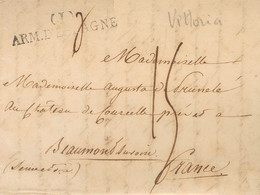 (1)
ARM. D'ESPAGNE
Vittoria
Mademoiselle
Mademoiselle Augusta de
au Château de Courcelle près et à
Beaumont
France